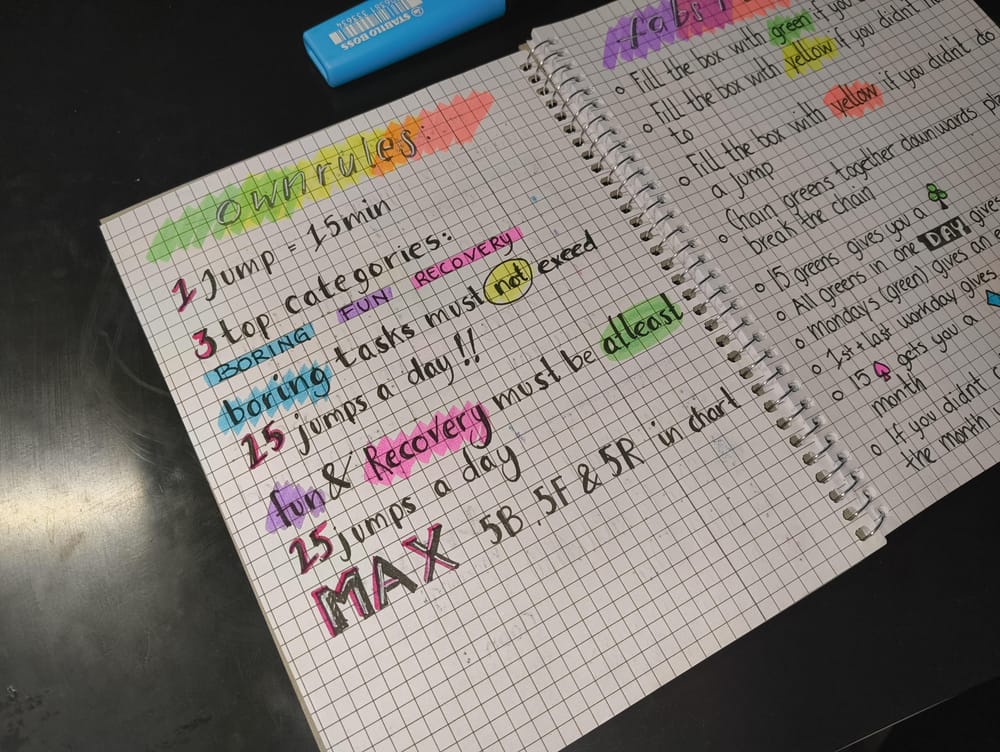 STABILO BOSS
own rules:
1 Jump = 15min
3 top categories:
BORING FUN RECOVERY
boring tasks must not exeed
25 jumps a day!!
fun & Recovery must be atleast
25 jumps a day
MAX 5B, 5F & 5R in chart
Fill the box with green if you
Fill the box with yellow if you didnt
to
Fill the box with yellow if you didn't do
a jump
Chain greens together downwards
break the chain
15 greens gives you a ♣
All greens in one DAY gives
mondays (green) gives an
1st + last workday gives
15 ♠ gets you a
month
If you didn't
the month